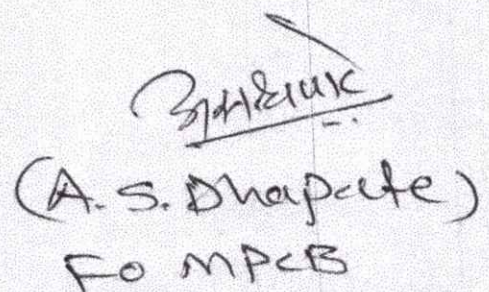 (A. S. Dhapate)
FO MPCB